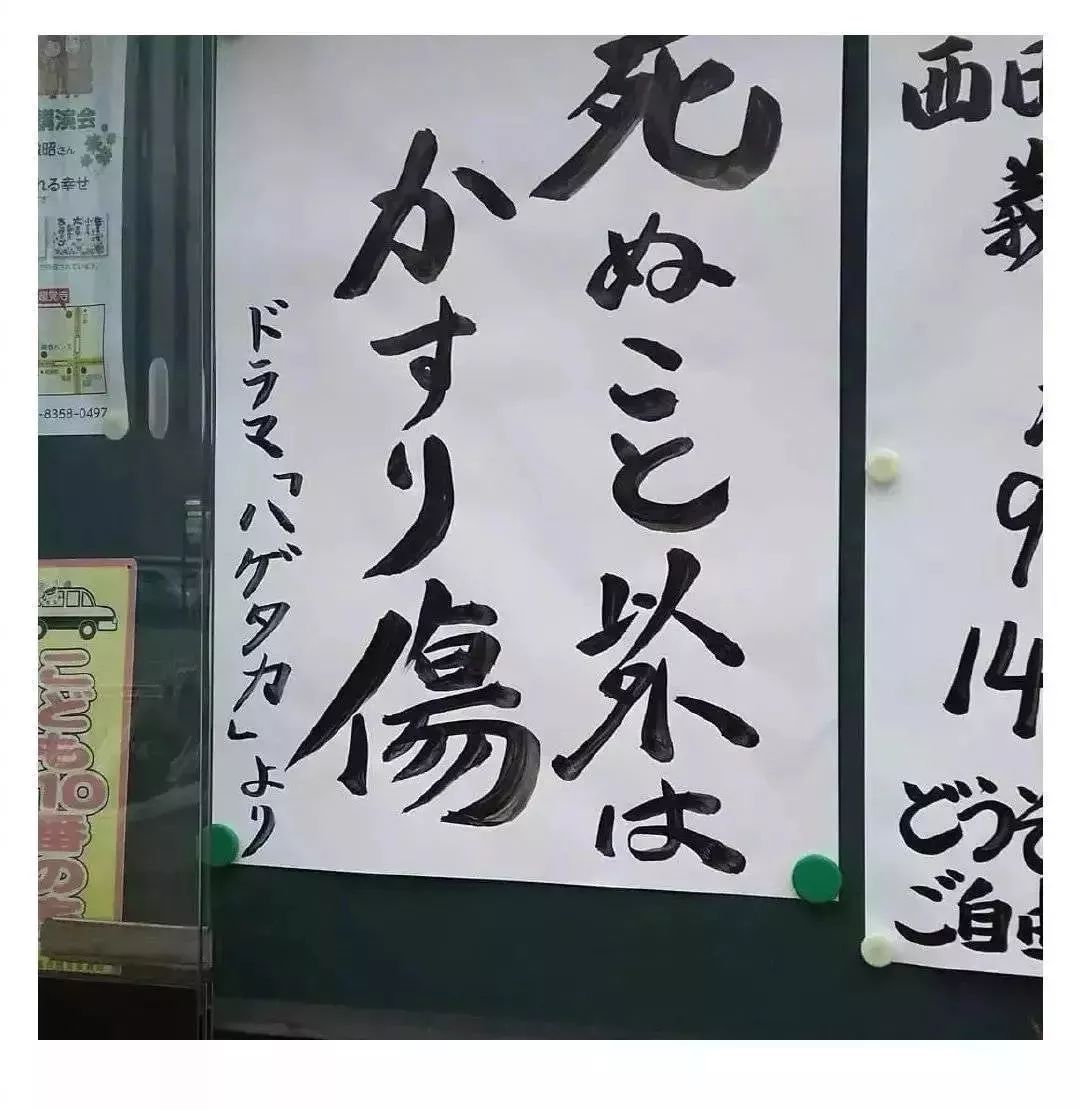 死ぬこと以外は
かすり傷
ドラマ「ハゲタカ」より
講演会
昭さん
れる幸せ
-8358-0497
こども110番の
西
義
9
14
どうぞ
ご自由